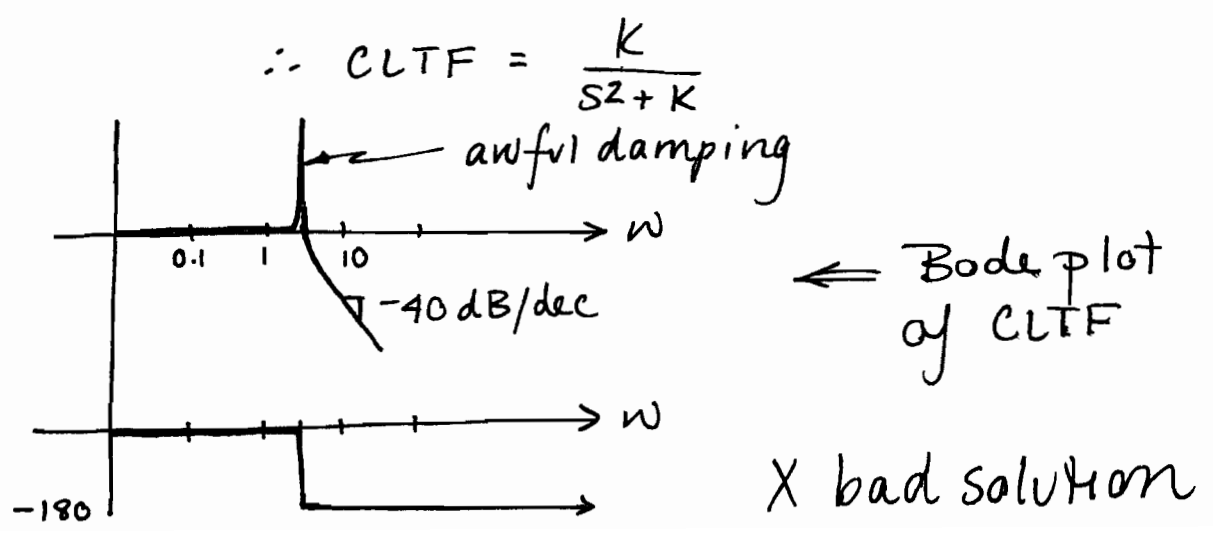 ∴ CLTF = K / (S² + K)
awful damping
ω
0.1 1 10
-40 dB/dec
⇐ Bode plot
of CLTF
ω
-180
X bad solution